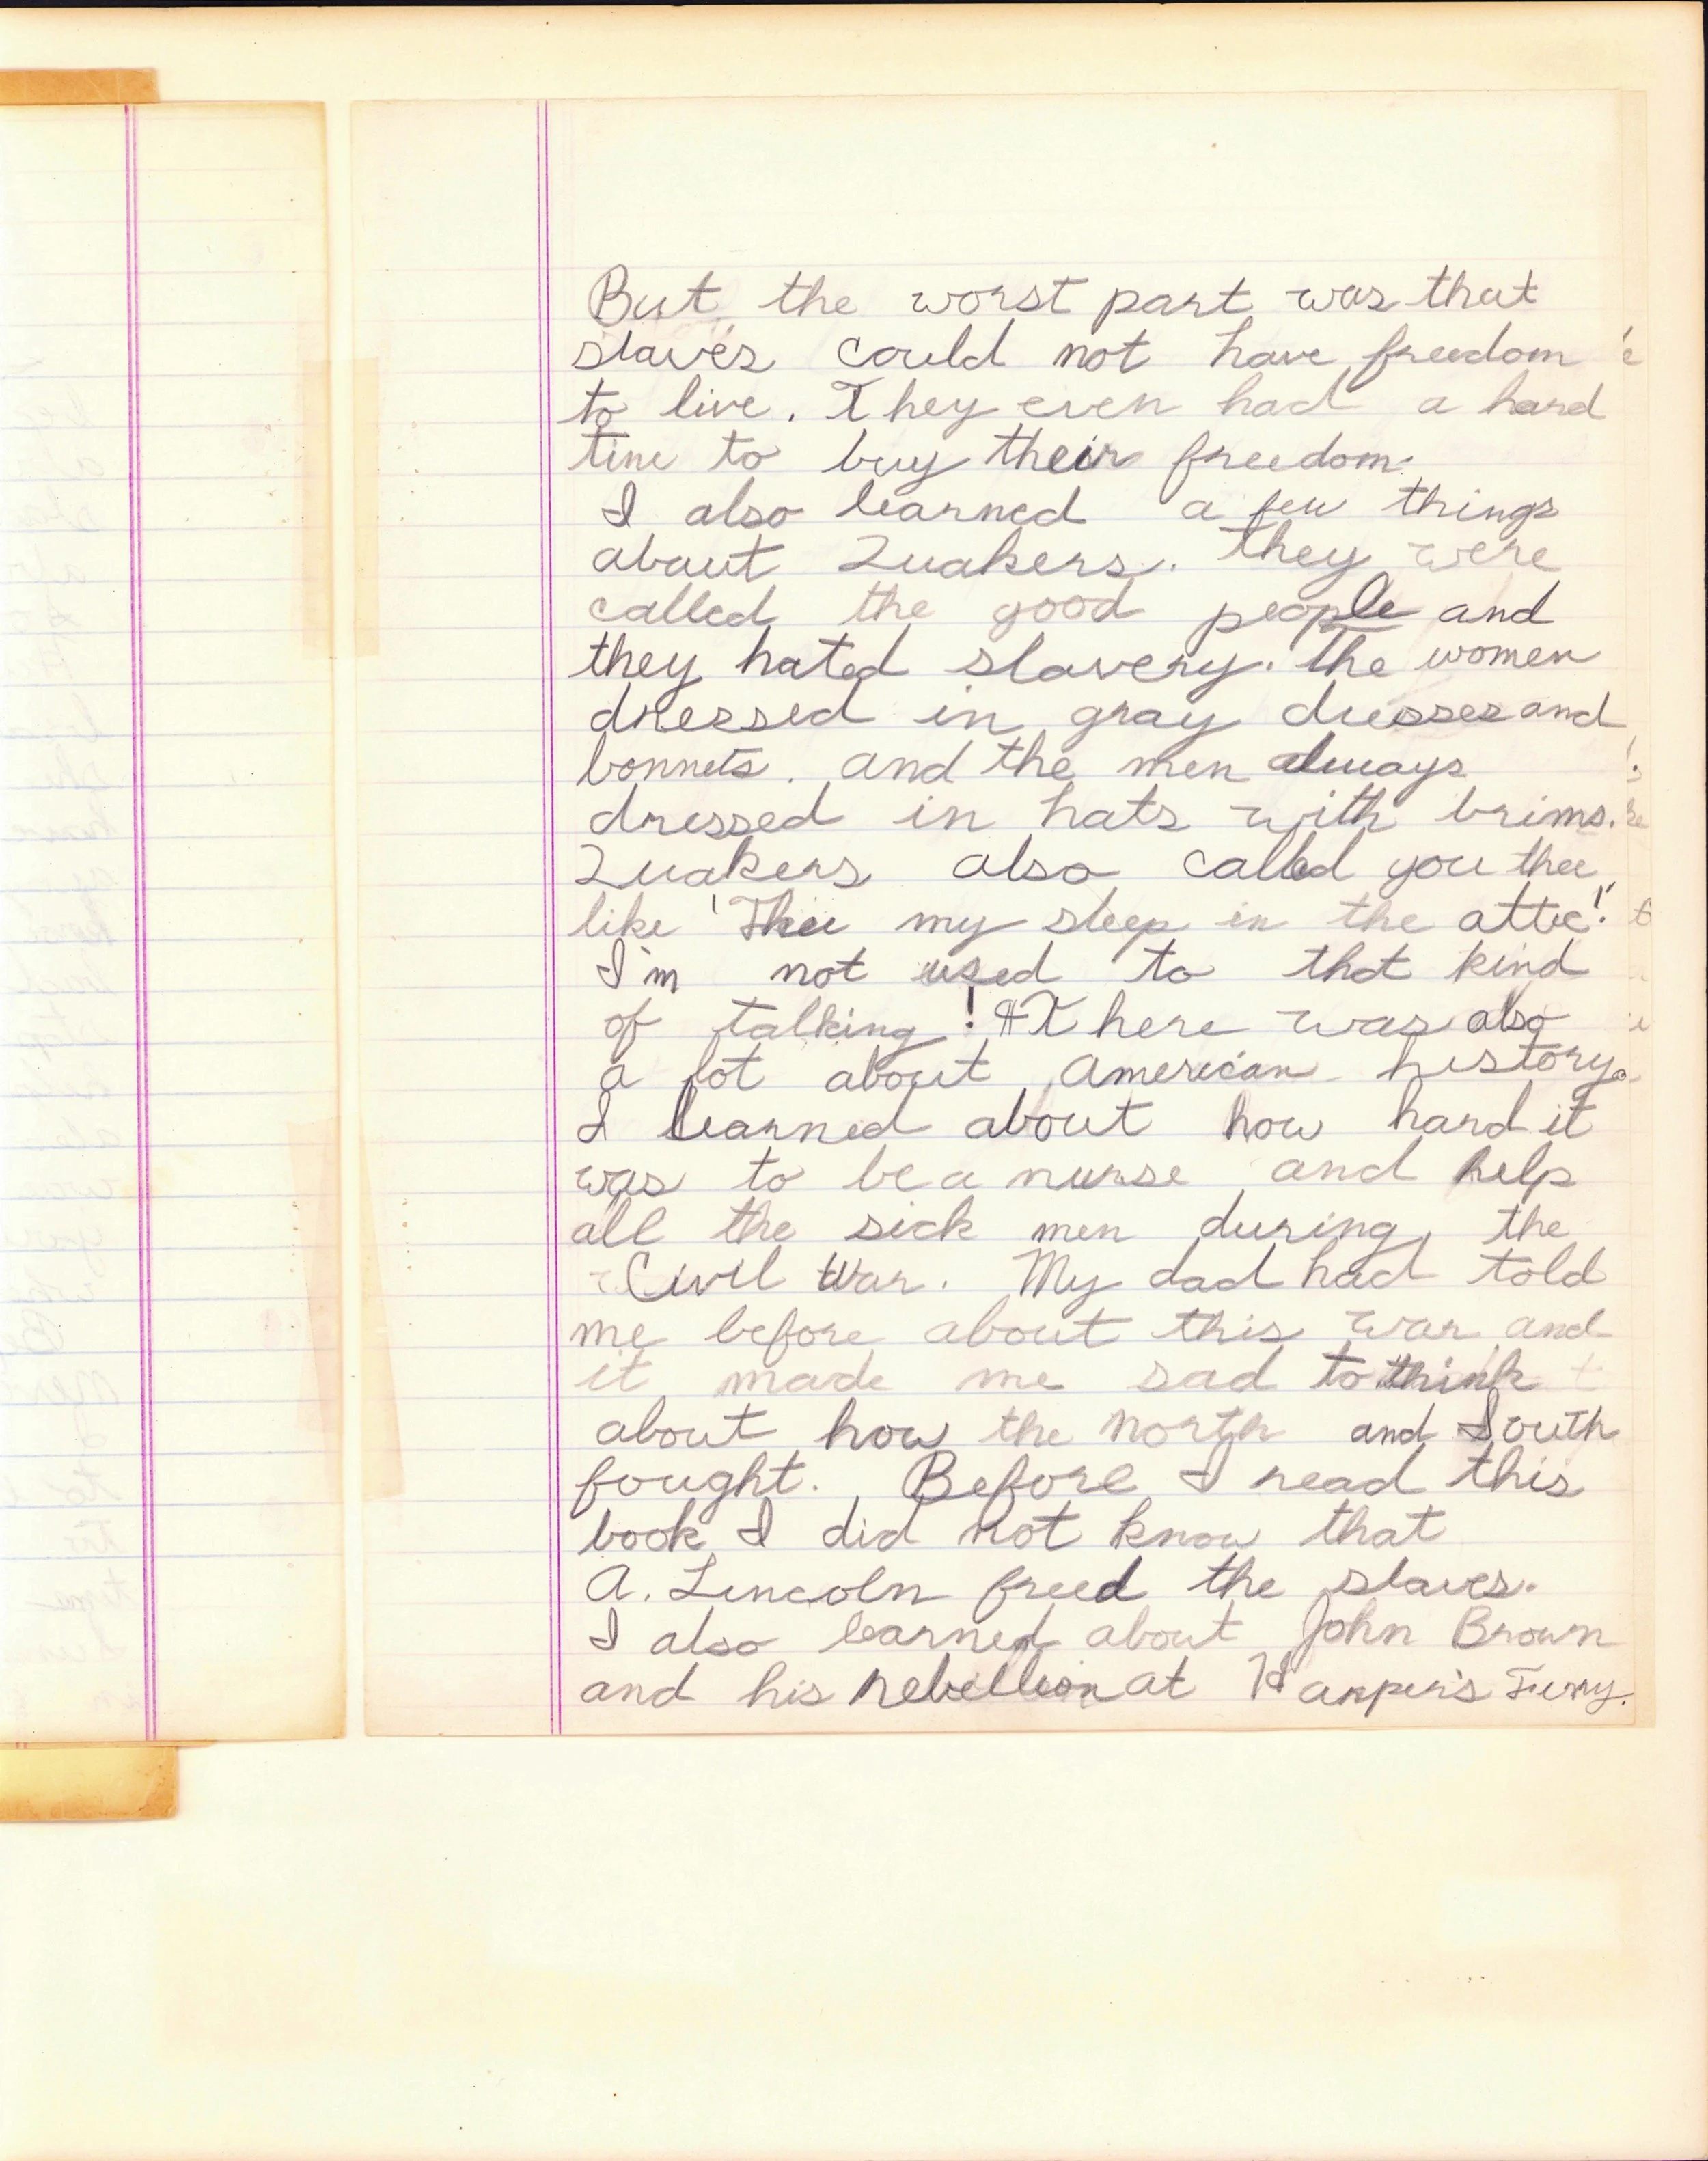 But the worst part was that
slaves could not have freedom
to live. They even had a hard
time to buy their freedom.
I also learned a few things
about Quakers. They were
called the good people and
they hated slavery. The women
dressed in gray dresses and
bonnets. and the men always
dressed in hats with brims.
Quakers also called you thee
like "Thee my sleep in the attic!"
I'm not used to that kind
of talking! There was also
a lot about American history.
I learned about how hard it
was to be a nurse and help
all the sick men during the
Civil War. My dad had told
me before about this war and
it made me sad to think
about how the North and South
fought. Before I read this
book I did not know that
A. Lincoln freed the slaves.
I also learned about John Brown
and his rebellion at Harper's Ferry.